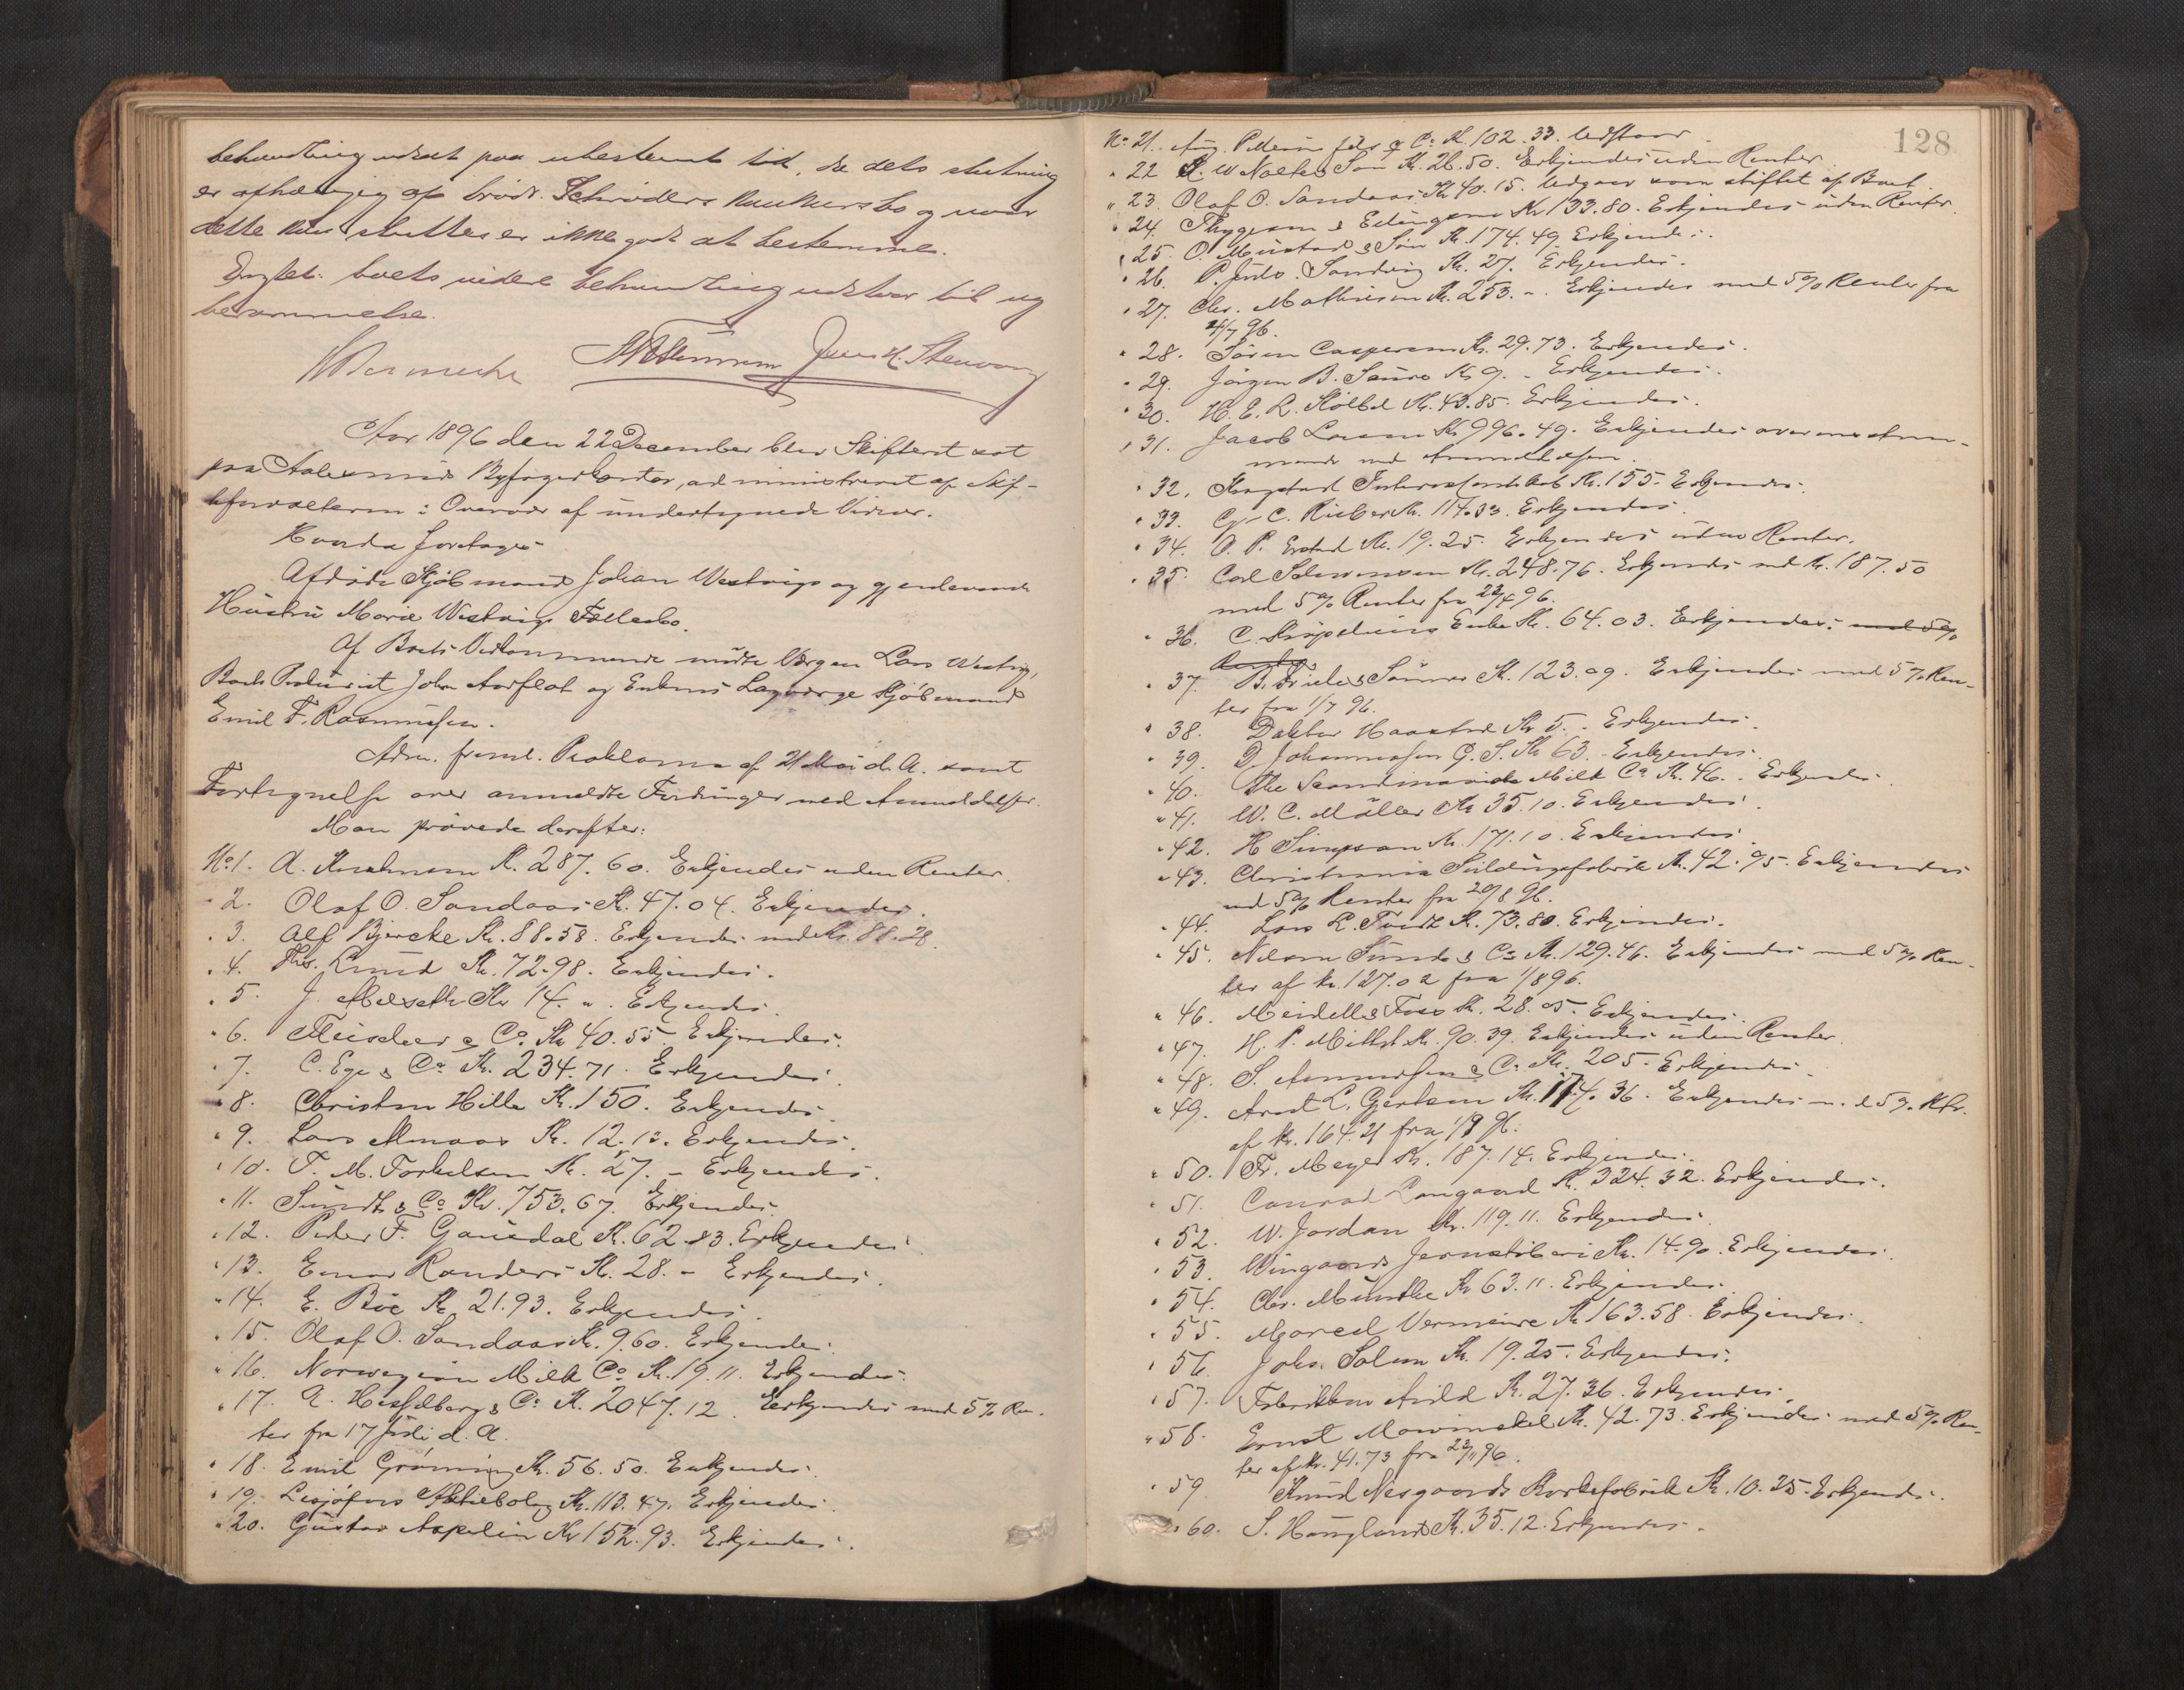 behandling udsat paa ubestemt tid, da dets slutning
er afhængig af brødr. Schrøders konkursbo og naar
dette kan sluttes er ikke godt at bestemme.
boets videre behandling udstaar til ny
berammelse.
Aar 1896 den 22 December blev Skifteret sat
paa Aalesunds Byfogedkontor, administreret af Skif-
teforvalteren i Overvær af undertegnede Vidner.
Hvorda foretoges
Afdøde Kjøbmand Johan Westvigs og gjenlevende
Hustru Marie Westvigs Fællesbo.
Af Boets Vedkommende mødte Værgen Lars Westvig,
Boets John Aarflot og Enkens Lagværge Kjøbmand
Emil F. Rasmussen.
Adm. freml. Proklama af 21 Mai d. A. samt
Fortegnelse over anmeldte Fordringer med Anmeldelser.
Man prøvede derefter:
No 1. A. Kr. 287.60. Erkjendes uden Renter.
" 2. Olaf O. Sandaas Kr. 47.04. Erkjendes.
" 3. Alf Bjercke Kr. 88.58. Erkjendes med Kr. 88.28
" 4. Lund Kr. 72.98. Erkjendes.
" 5. J. Kr 14. ". Erkjendes.
" 6. Fleischer & Co Kr 40.55. Erkjendes.
" 7. C. Ege & Co Kr. 234.71. Erkjendes.
" 8. Christen Hille Kr. 150. Erkjendes.
" 9. Lars Kr. 12.12. Erkjendes.
" 10. T. M. Torkelsen Kr. 27. - Erkjendes.
" 11. Sundt & Co Kr. 753.67. Erkjendes.
" 12. Peder F. Gausdal Kr. 62.83. Erkjendes.
" 13. Einar Randers Kr. 28. - Erkjendes.
" 14. E. Böe Kr. 21.93. Erkjendes.
" 15. Olaf O. Sandaas Kr. 9.60. Erkjendes.
" 16. Norwegian Milk Co Kr. 19.11. Erkjendes.
" 17. A. Hesselberg & Co Kr. 2047.12. Erkjendes med 5% Ren-
ter fra 17 Juli d. A.
" 18. Emil Grøning Kr. 56.50. Erkjendes.
" 19. Lesjöfors Aktiebolag Kr. 113.47. Erkjendes.
" 20. Gustav Aspelin Kr 152.93. Erkjendes.
128
No 21. Aug. Pellerin fils & Co Kr. 102.33. Udstaar
" 22 Son Kr. 26.50. Erkjendes uden Renter.
" 23. Olaf O. Sandaas Kr 40.15. Udgaar som stiftet af Boet.
" 24. Thygesen & Kr 133.80. Erkjendes uden Renter.
" 25. O. Mustad & Søn Kr. 174.49. Erkjendes.
" 26. P. Sandvig Kr. 27. Erkjendes.
" 27. Chr. Mathiesen Kr. 253. -. Erkjendes med 5% Renter fra
/7 96.
" 28. Søren Caspersen Kr. 29.73. Erkjendes.
" 29. Jörgen B. Kr 9. - Erkjendes.
" 30. H. E. L. Kr. 43.85. Erkjendes.
" 31. Jacob Larsen Kr 996.49. Erkjendes overensstem-
mende med Anmeldelsen.
" 32. Kr. 155. Erkjendes.
" 33. C. Rieber Kr. 114.33. Erkjendes.
" 34. O. P. Kr. 19.25. Erkjendes uden Renter.
" 35. Carl Kr. 248.76. Erkjendes med Kr. 187.50
med 5% Renter fra 96.
" 36. C. Enke Kr. 64.03. Erkjendes. med 5%
Renter
" 37. B. Friele & Sønner Kr. 123.09. Erkjendes med 5% Ren-
ter fra 1/7 96.
" 38. Doktor Kr 5. - Erkjendes.
" 39. D. Johannessen G. S. Kr 63. Erkjendes.
" 40. The Scandinavian Milk Co Kr. 46. Erkjendes.
" 41. W. C. Möller Kr 35.10. Erkjendes.
" 42. H Simpson Kr. 171.10. Erkjendes.
" 43. Christiania Kr. 42.95. Erkjendes
med 5% Renter fra 20/8 96.
" 44. Lars L. Kr. 73.80. Erkjendes.
" 45. Nelson & Co Kr. 129.46. Erkjendes med 5% Ren-
ter af Kr. 127.02 fra 1/8 96.
" 46. Meidell & Foss Kr. 28.05. Erkjendes.
" 47. H. P. Kr. 90.39. Erkjendes uden Renter.
" 48. S. & Co Kr. 205. Erkjendes.
" 49. L. Gertsen Kr. 174.36. Erkjendes m. 5% Rtr.
af Kr. 164.21 fra 1/9 96.
" 50. Fr. Meyer Kr. 187.14. Erkjendes.
" 51. Conrad Langaard Kr. 324.32. Erkjendes.
" 52. W. Jordan Kr. 119.11. Erkjendes.
" 53. Wingaards Jernstøberi Kr. 14.90. Erkjendes.
" 54. Chr. Munthe Kr 63.11. Erkjendes.
" 55. Marcel Vermeire Kr 163.58. Erkjendes.
" 56. Johs. Solem Kr. 19.25. Erkjendes.
" 57. Fabrikken Kr. 27.36. Erkjendes.
" 58. Ernst Mowinckel Kr. 42.73. Erkjendes med 5% Ren-
ter af Kr. 41.73 fra 96.
" 59. Knud Nesgaards Korkefabrik Kr. 10.25. Erkjendes.
" 60. S. Haugland Kr. 35.12. Erkjendes.